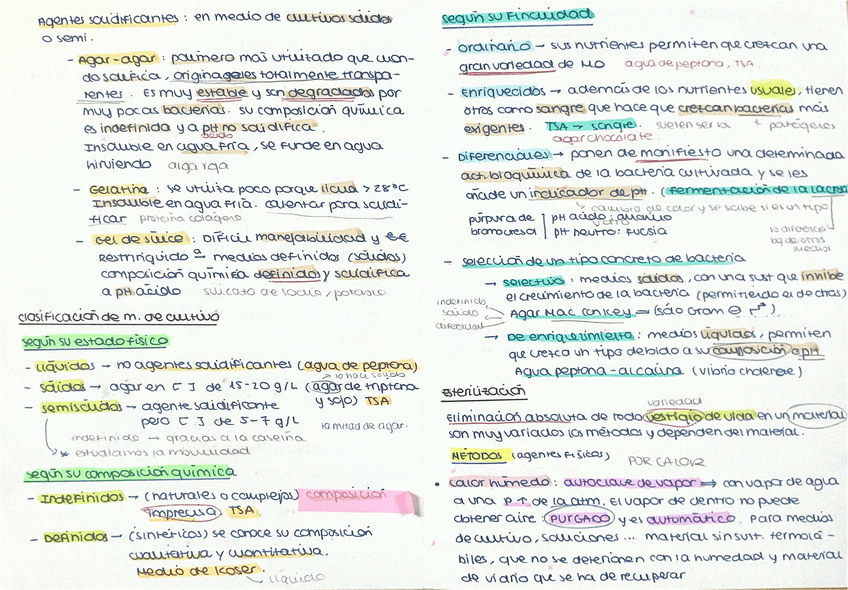 Agentes solidificantes: en medio de cultivos sólidos
o semi.
- Agar-agar: polímero más utilizado que cuan-
do solidifica, origina geles totalmente transpa-
rentes. Es muy estable y son degradados por
muy pocas bacterias. Su composición química
es indefinida y a pH no solidifica.
ácido
Insoluble en agua fría, se funde en agua
hirviendo alga roja
- Gelatina: se utiliza poco porque licua > 28ºC
Insoluble en agua fría. Calentar para solidi-
ficar proteína colágeno
- Gel de sílice: Difícil manejabilidad y
restringido a medios definidos (sólidos)
composición química definida y solidifica
a pH ácido silicato de sodio/potasio
Clasificación de m. de cultivo
según su estado físico
- Líquidos → no agentes solidificantes (agua de peptona)
- sólidos → agar en [ ] de 15-20 g/L (agar de triptona
y soja) TSA
- semisólidos → agente solidificante
pero [ ] de 5-7 g/L la mitad de agar.
indefinido → gracias a la caseína
* estudiamos la movilidad
según su composición química
- Indefinidos → (naturales o complejos) composición
imprecisa TSA.
- Definidos → (sintéticos) se conoce su composición
cualitativa y cuantitativa.
Medio de Koser.
líquido
según su finalidad
- ordinario → sus nutrientes permiten que crezcan una
gran variedad de MO agua de peptona, TSA.
- Enriquecidos → además de los nutrientes usuales, tienen
otros como sangre que hace que crezcan bacterias más
exigentes. TSA → sangre. suelen ser la patógenos
agar chocolate
- Diferenciales → ponen de manifiesto una determinada
act. bioquímica de la bacteria cultivada y se les
añade un indicador de pH. (fermentación de la lactosa
cambio de color y se sabe si es un tipo
púrpura de pH ácido: amarillo
bromocresol pH neutro: fucsia
lo diferencia
de otros
medios
- selección de un tipo concreto de bacteria
→ selectivo: medios sólidos, con una sust que inhibe
el crecimiento de la bacteria (permitiendo el de otras)
indefinido
sólido
diferencial
Agar Mac Conkey → (sólo Gram ⊖)
→ De enriquecimiento: medios líquidos, permiten
que crezca un tipo debido a su composición o pH
Agua peptona-alcalina (vibrio cholerae)
Esterilización
variedad
Eliminación absoluta de todo vestigio de vida en un material
son muy variados los métodos y dependen del material.
MÉTODOS (agentes físicos) POR CALOR
• Calor húmedo: autoclave de vapor ⇒ con vapor de agua
a una P ↑ de la atm. El vapor de dentro no puede
obtener aire: PURGADO y es automático. Para medios
de cultivo, soluciones ... material sin sust. termolá-
biles, que no se deterioren con la humedad y material
de vidrio que se ha de recuperar